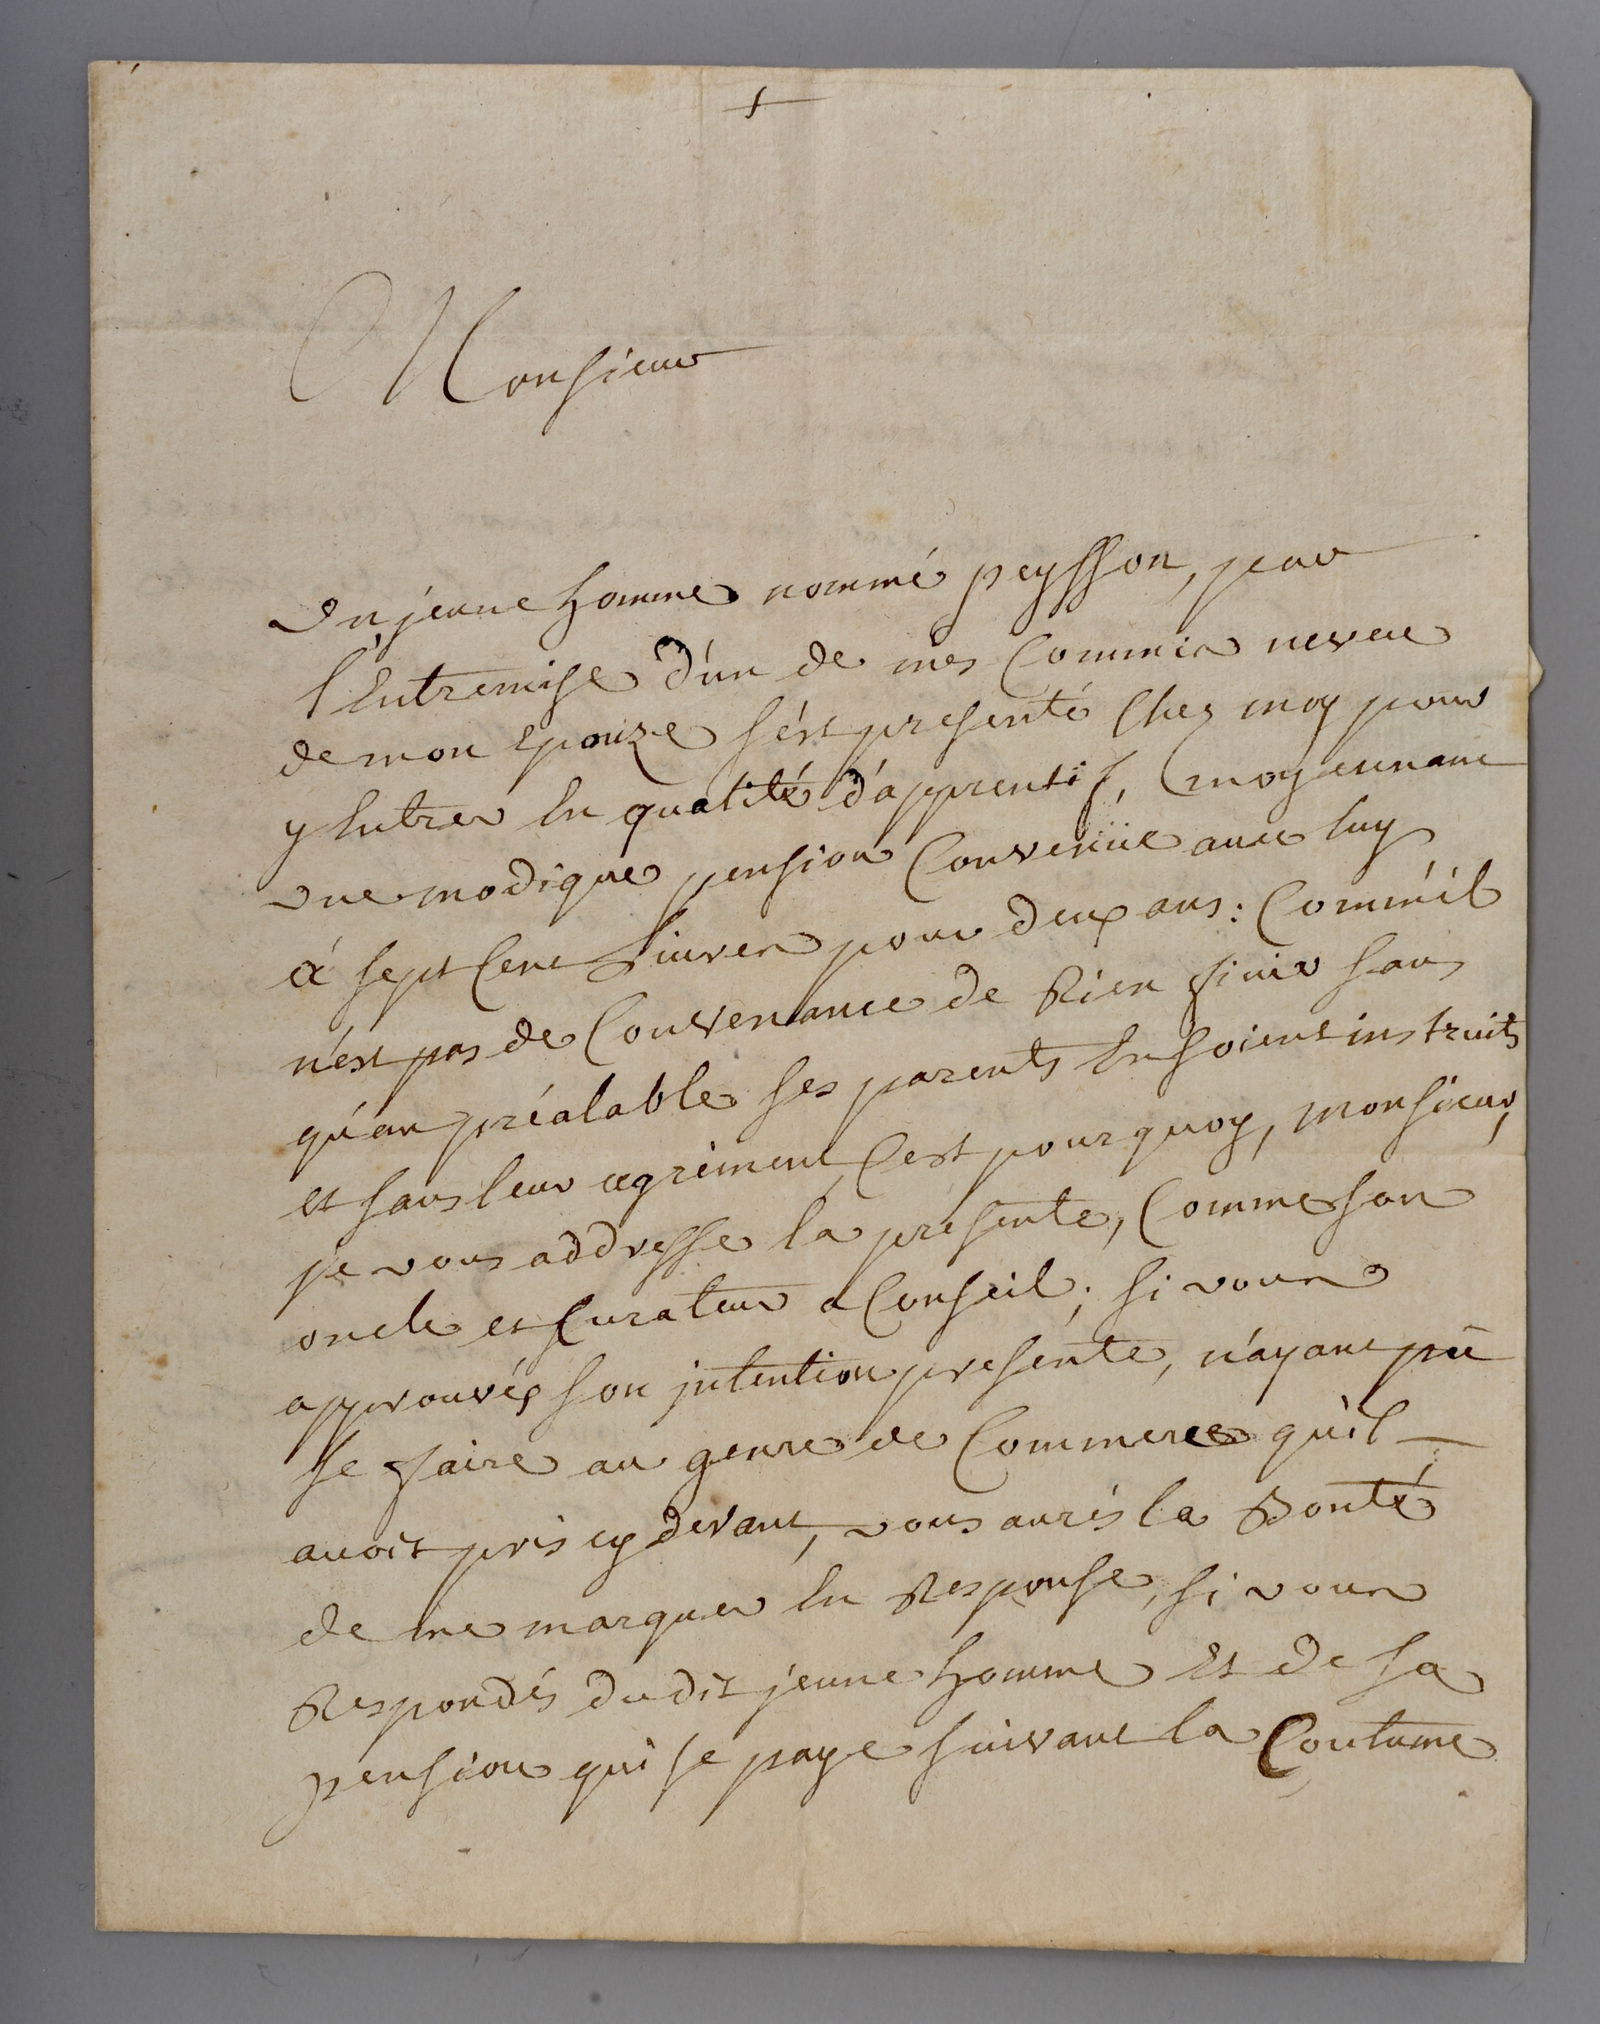 +
Monsieur
Un jeune homme nommé peysson, par
l'Entremise d'un de mes Commis neveu
de mon Epouze s'est presenté Chez moy pour
y Entrer En qualité d'apprentif, moyennant
une modique pension Convenüe avec luy
à sept Cent Livres pour deux ans: Comm'il
n'est pas de Convenance de Rien finir sans
qu'au préalable ses parents En soient instruits
et sans leur agrément, C'est pourquoy, Monsieur,
je vous addresse la presente, Comme son
oncle et Curateur a Conseil; si vous
approuvés son jntention presente, n'ayant pû
se faire au genre de Commerce qu'il
avoit pris cy devant, vous aurés la Bonté
de me marquer En Response, si vous
Respondés dudit jeune homme Et de sa
pension qui se paye suivant la Coutume